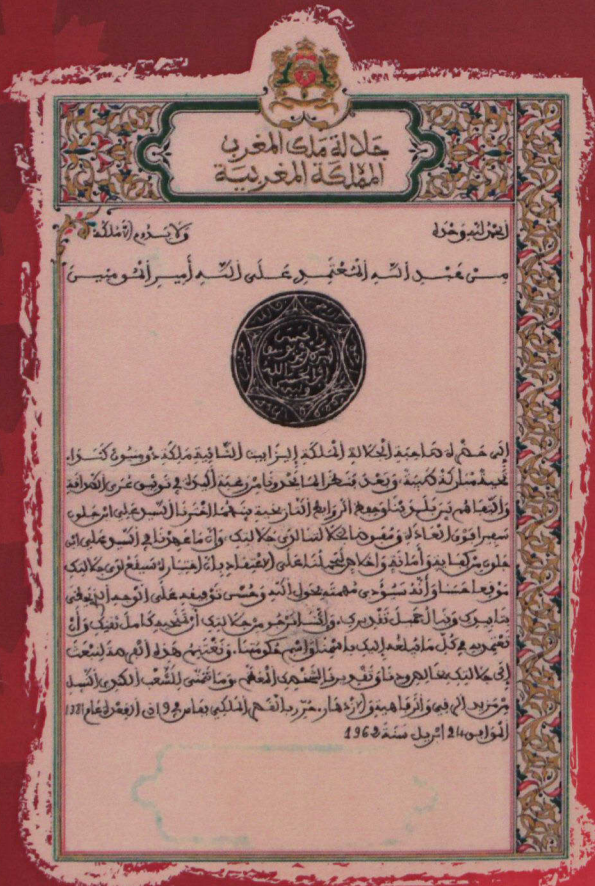 جلالة ملك المغرب
المملكة المغربية
الحمد لله وحده ولا يدوم إلا ملكه
من عبد الله المعتمد على الله أمير المومنين
إلى حضرة صاحبة الجلالة الملكة إليزابيت الثانية ملكة دومنيون كندا.
تحية مباركة طيبة، وبعد فنظرا لما تحدونا من رغبة أكيدة في توثيق عرى الصداقة
والتفاهم بين بلدينا وجميع الروابط التاريخية بينهما
سفيرا فوق العادة ومفوضا لجلالتنا لدى جلالتك، وأن ما عهدناه في السيد علي ابن
جلون من كفاية وأمانة وإخلاص لتحملنا على الاعتقاد بأن اختيارنا سيقع لدى جلالتك
موقعا حسنا وأنه سيؤدي مهمته بحول الله وحسن توفيقه على الوجه الذي
وينال جميل تقديرك، وإننا لنرجو من جلالتك أن تمنحيه كامل ثقتك وأن
تعتمديه في كل ما يبلغه إليك باسمنا واسم حكومتنا. ونغتنم هذه الفرصة لنبعث
إلى جلالتك بخالص ودنا وتقديرنا لشخصك المعظم، وما نتمنى للشعب الكندي النبيل
من مزيد الرقي والرفاهية والازدهار. حرر بالقصر الملكي بفاس في 19 ذي القعدة عام 1381
الموافق 24 ابريل سنة 1962